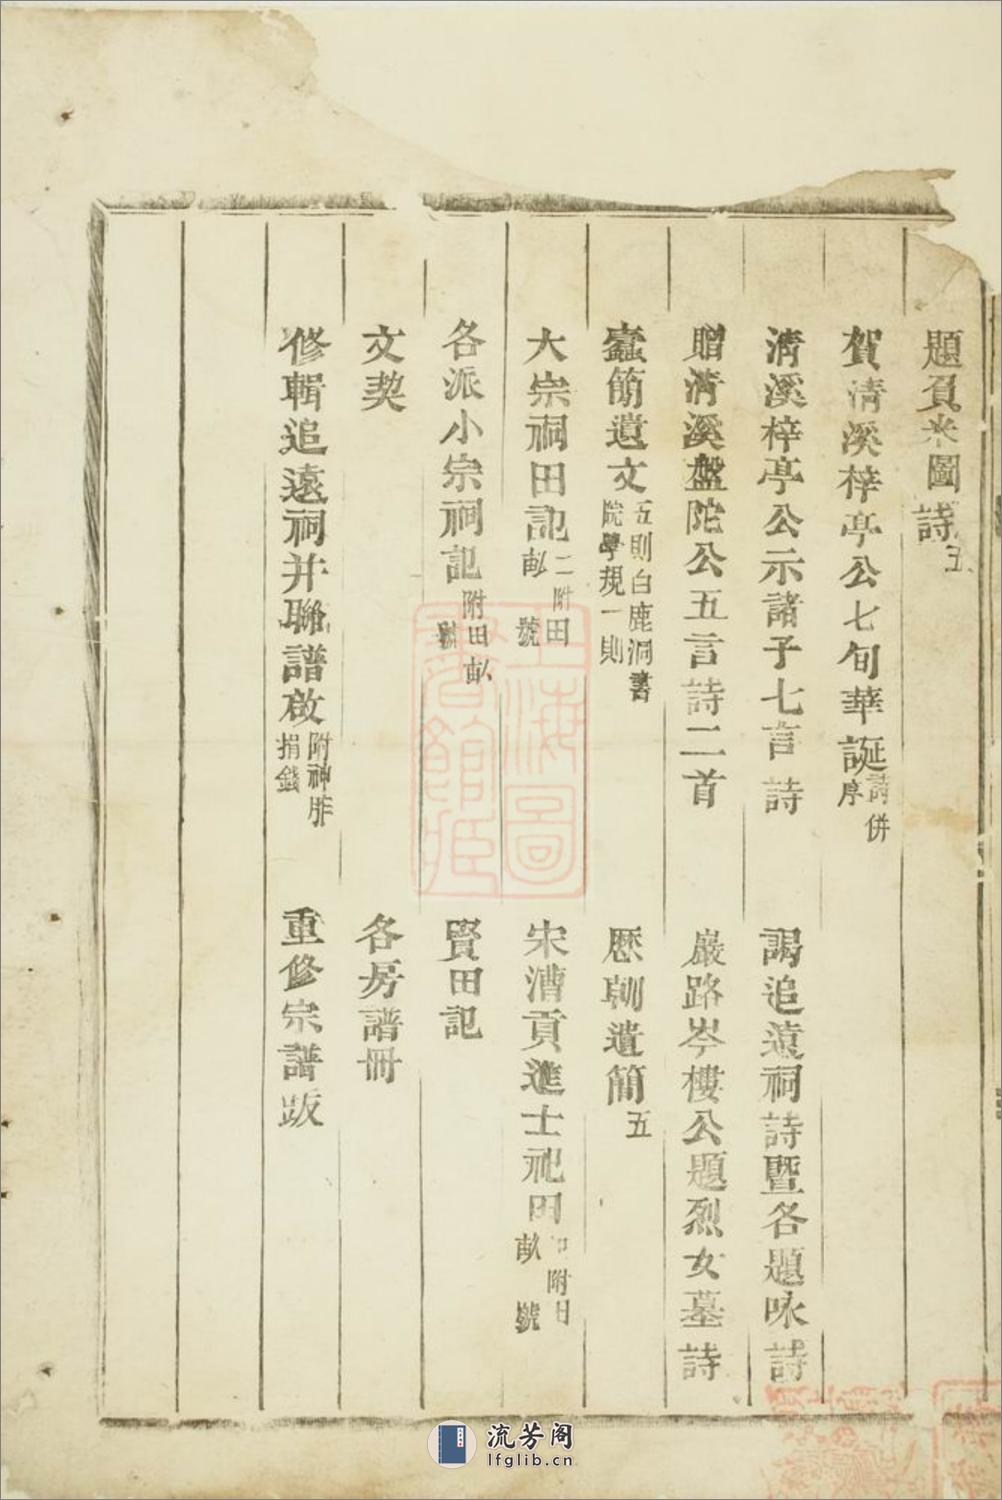 題負米圖詩五
賀清溪梓亭公七旬華誕詩併序
清溪梓亭公示諸子七言詩　謁追遠祠詩暨各題咏詩
贈清溪盤陀公五言詩二首　嚴路岑樓公題烈女墓詩
蠹簡遺文五則白鹿洞書院學規一則　歷朝遺簡五
大宗祠田記二附田畝號　宋漕貢進士祀田附田畝號
各派小宗祠記附田畝號　賢田記
文契　各房譜冊
修輯追遠祠并聯譜啟附神胙捐錢　重修宗譜跋
上海圖書館藏
流芳阁
lfglib.cn